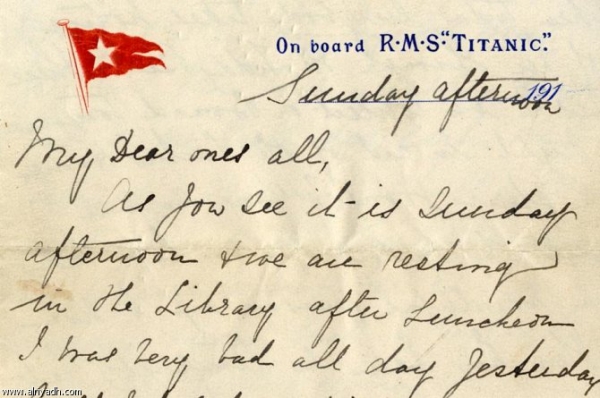 On board R·M·S·"TITANIC".
191
Sunday afternoon
My Dear ones all,
As you see it is Sunday
afternoon & we are resting
in the Library after Luncheon
I was very bad all day yesterday
www.alriyadh.com